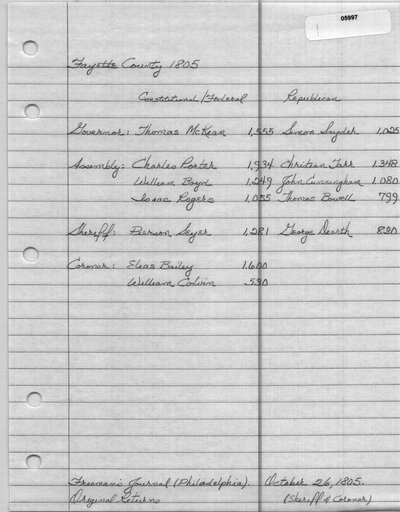 05997
Fayette County 1805
Constitutional/Federal Republican
Governor: Thomas McKean 1,555 Simon Snyder 1,025
Assembly: Charles Porter 1,934 Christian Tarr 1,348
William Boyd 1,249 John Cunningham 1,080
Isaac Rogers 1,055 Thomas Bowell 799
Sheriff: Pierson Sayer 1,281 George Dearth 830
Coroner: Elias Bailey 1,600
William Colvin 530
Freeman's Journal (Philadelphia). October 26, 1805.
Original Returns (Sheriff & Coroner)